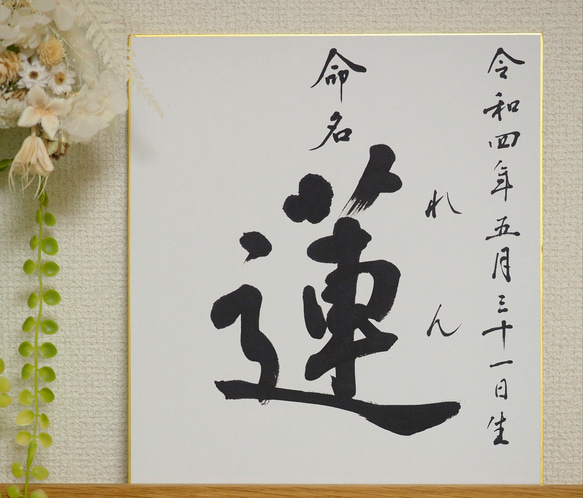 令和四年五月三十一日生
れん
命名
蓮